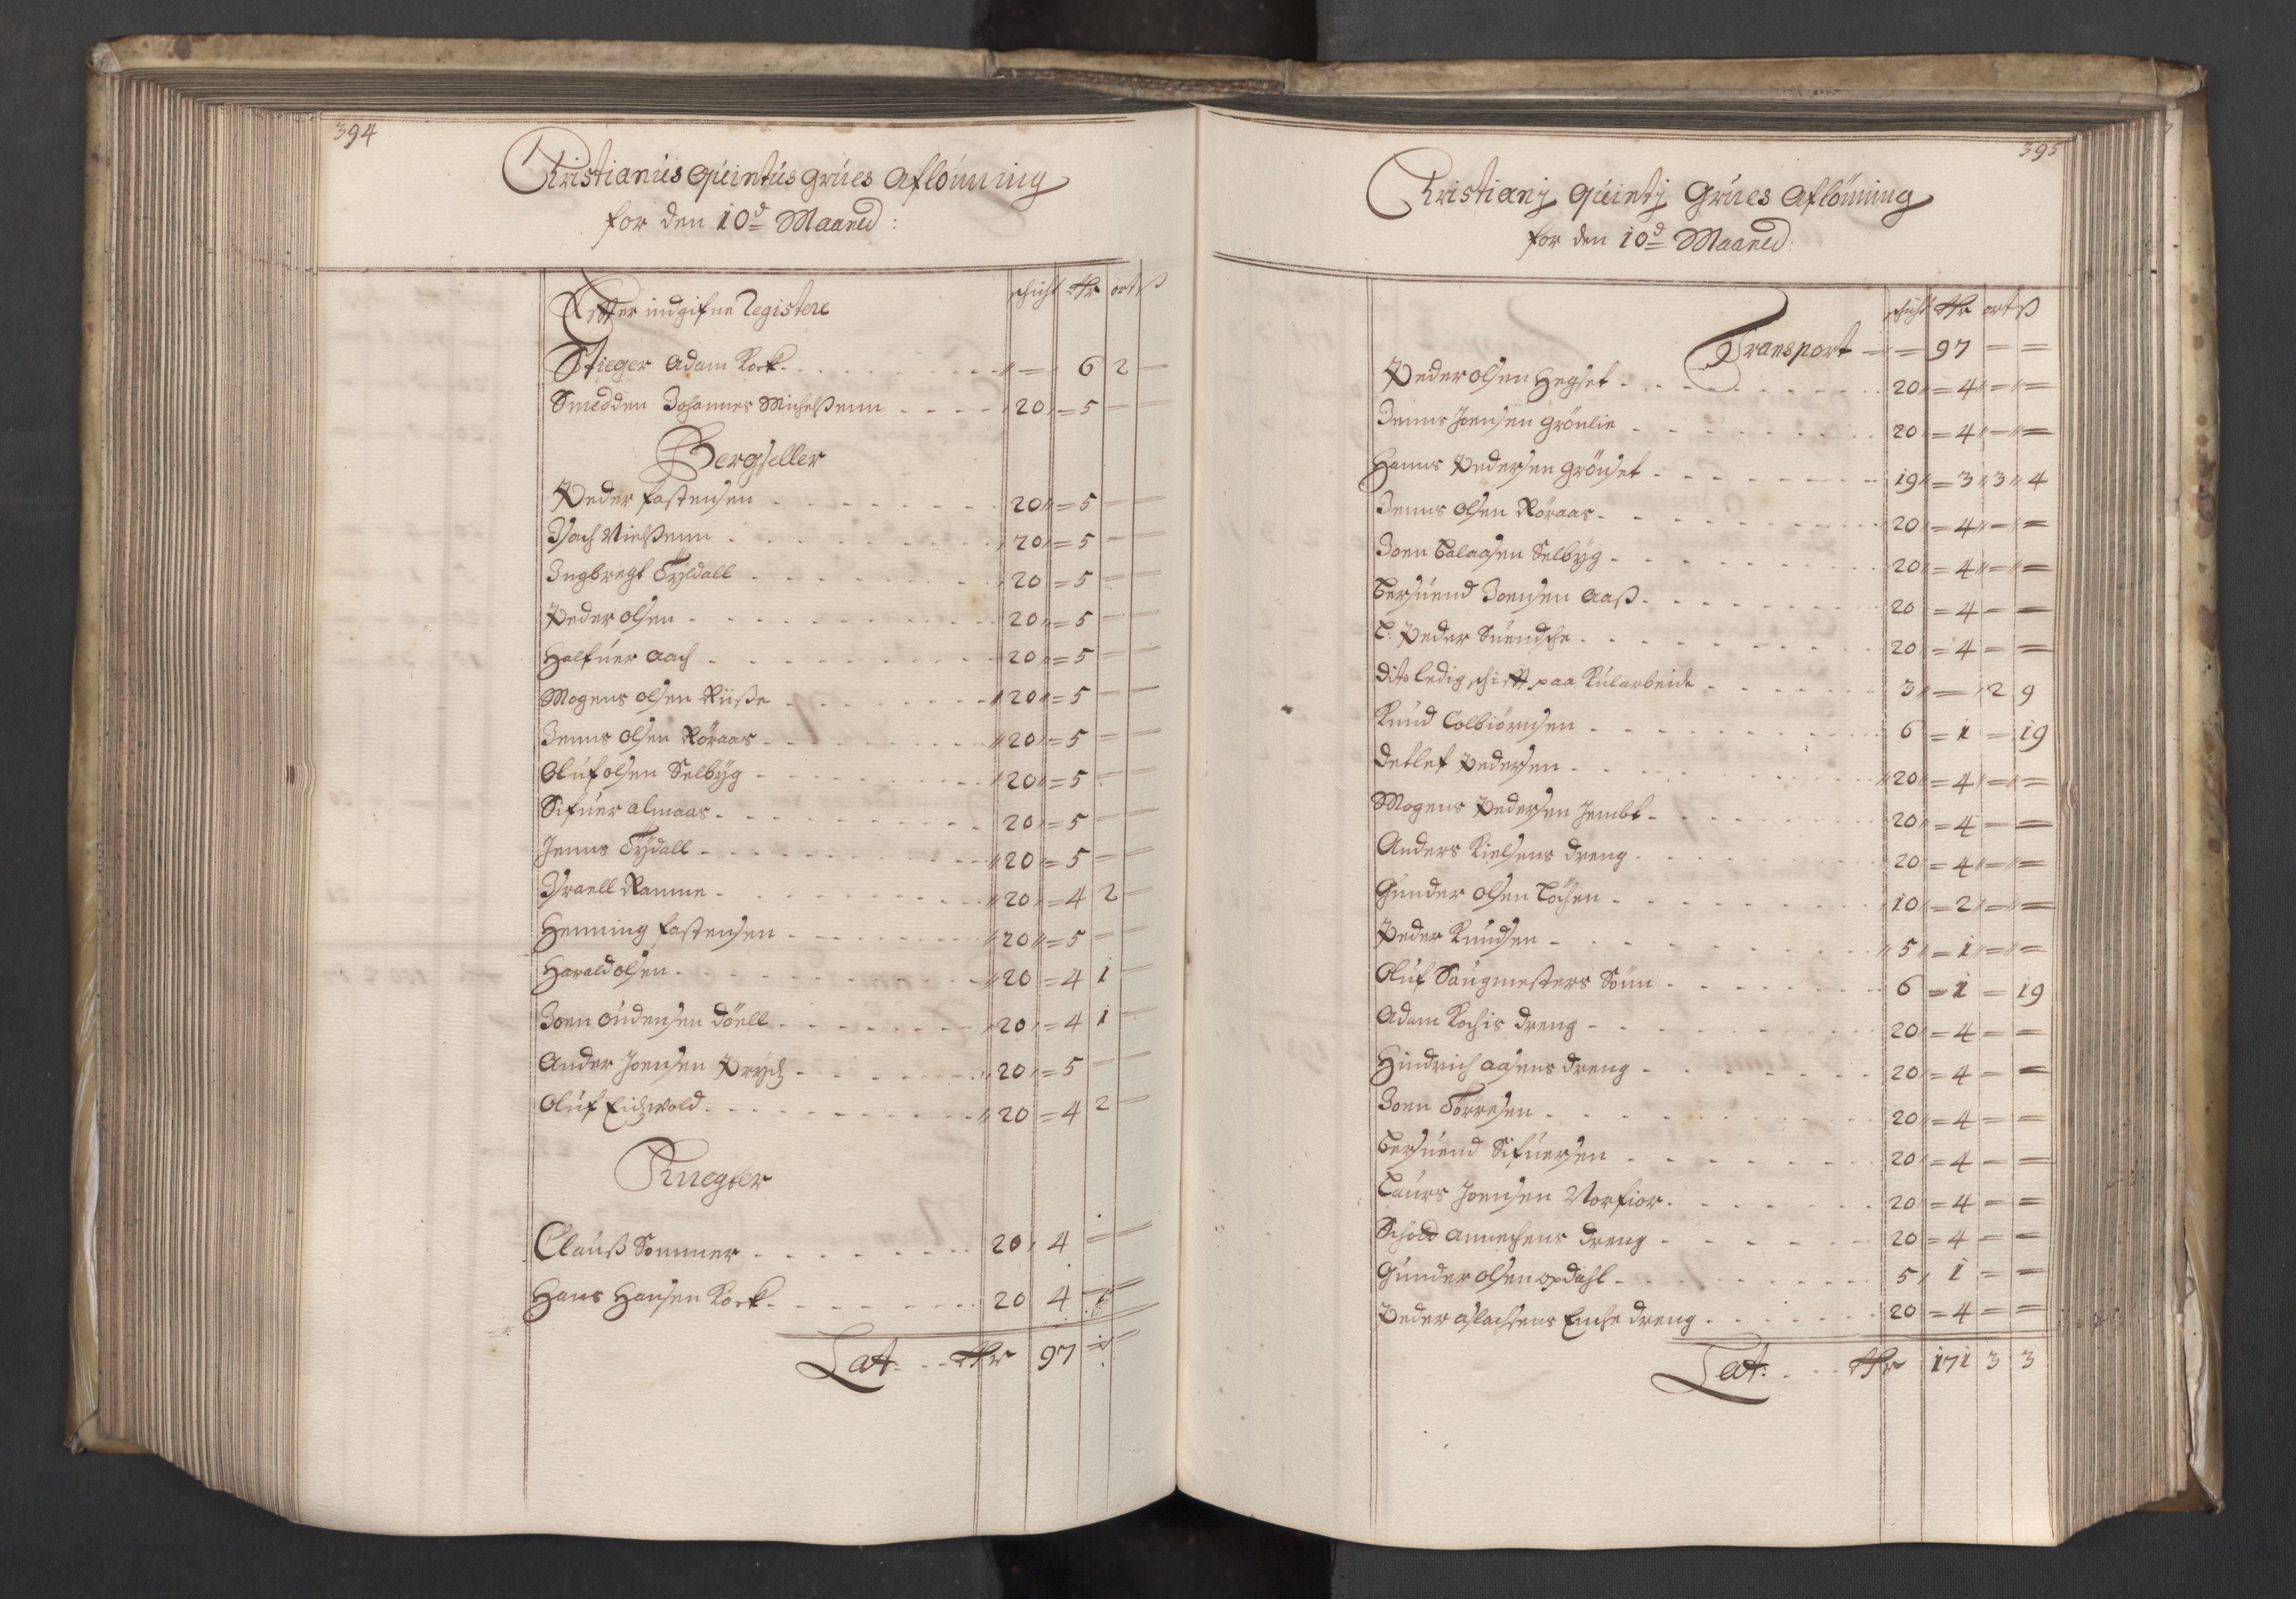 394
Christianus Quintus Grues Aflönning
for den 10d Maaned:
schicht Rdr ort ß
Efter indgifne Registere
Stieger Adam Kock - - - 6 2 -
Smedden Johannes Michelßenn - - - 20 = 5 - -
Bergseller
Peder Fastensen - - - 20 = 5 - -
Isach Nielßenn - - - 20 = 5 - -
Ingbregt Tyldall - - - 20 = 5 - -
Peder Olsen - - - 20 = 5 - -
Halfuer Aach - - - 20 = 5 - -
Mogens Olsen Riiße - - - 20 = 5 - -
Jenns Olsen Röraas - - - 20 = 5 - -
Oluf Olsen Selbyg - - - 20 = 5 - -
Sifuer Almaas - - - 20 = 5 - -
Jenns Tydall - - - 20 = 5 - -
Israell Ramme - - - 20 = 4 2 -
Henning Fastensen - - - 20 = 5 - -
Harald Olsen - - - 20 = 4 1 -
Joen Oudensen Döell - - - 20 = 4 1 -
Ander Joensen Prydz - - - 20 = 5 - -
Oluf Eidzwold - - - 20 = 4 2 -
Knegter
Clauß Sommer - - - 20 4 = -
Hans Hansen Kock - - - 20 4 = -
Lat: - - Rdr 97 = -
395
Christianj Quintj Grues Aflönning
for den 10d Maaned:
schicht Rdr ort ß
Transport - = 97 = =
Peder Olsen Hegset - - - 20 = 4 = =
Jenns Joensen Grönlie - - - 20 = 4 = =
Hanns Pedersen Grönset - - - 19 = 3 3 4
Jenns Olsen Röraas - - - 20 = 4 = =
Joen Salaasen Selbyg - - - 20 = 4 = =
Bersuend Joensen Aaß - - - 20 = 4 - =
L: Peder Suendsche - - - 20 = 4 - =
Dito ledig schift paa Kularbeide - - - 3 - 2 9
Knud Colbiörnsen - - - 6 = 1 - 19
Detlef Pedersen - - - 20 = 4 = =
Mogens Pedersen Jembt - - - 20 = 4 - =
Anders Kielsens Dreng - - - 20 = 4 = =
Gunder Olsen - - - 10 = 2 = =
Peder Knudsen - - - 5 = 1 = =
Oluf Saugmesters Sönn - - - 6 = 1 = 19
Adam Kochis Dreng - - - 20 = 4 = =
Hindrich Aasens Dreng - - - 20 = 4 - =
Joen Torresen - - - 20 = 4 = =
Bersuend Sifuersen - - - 20 = 4 - =
Laurs Joensen Norfior - - - 20 = 4 - =
Annechens Dreng - - - 20 = 4 - =
Gunder Olsen Opdahl - - - 5 1 = =
Peder Aslachsens Enche Dreng - - - 20 = 4 - =
Lat: - - - Rdr 171 3 3